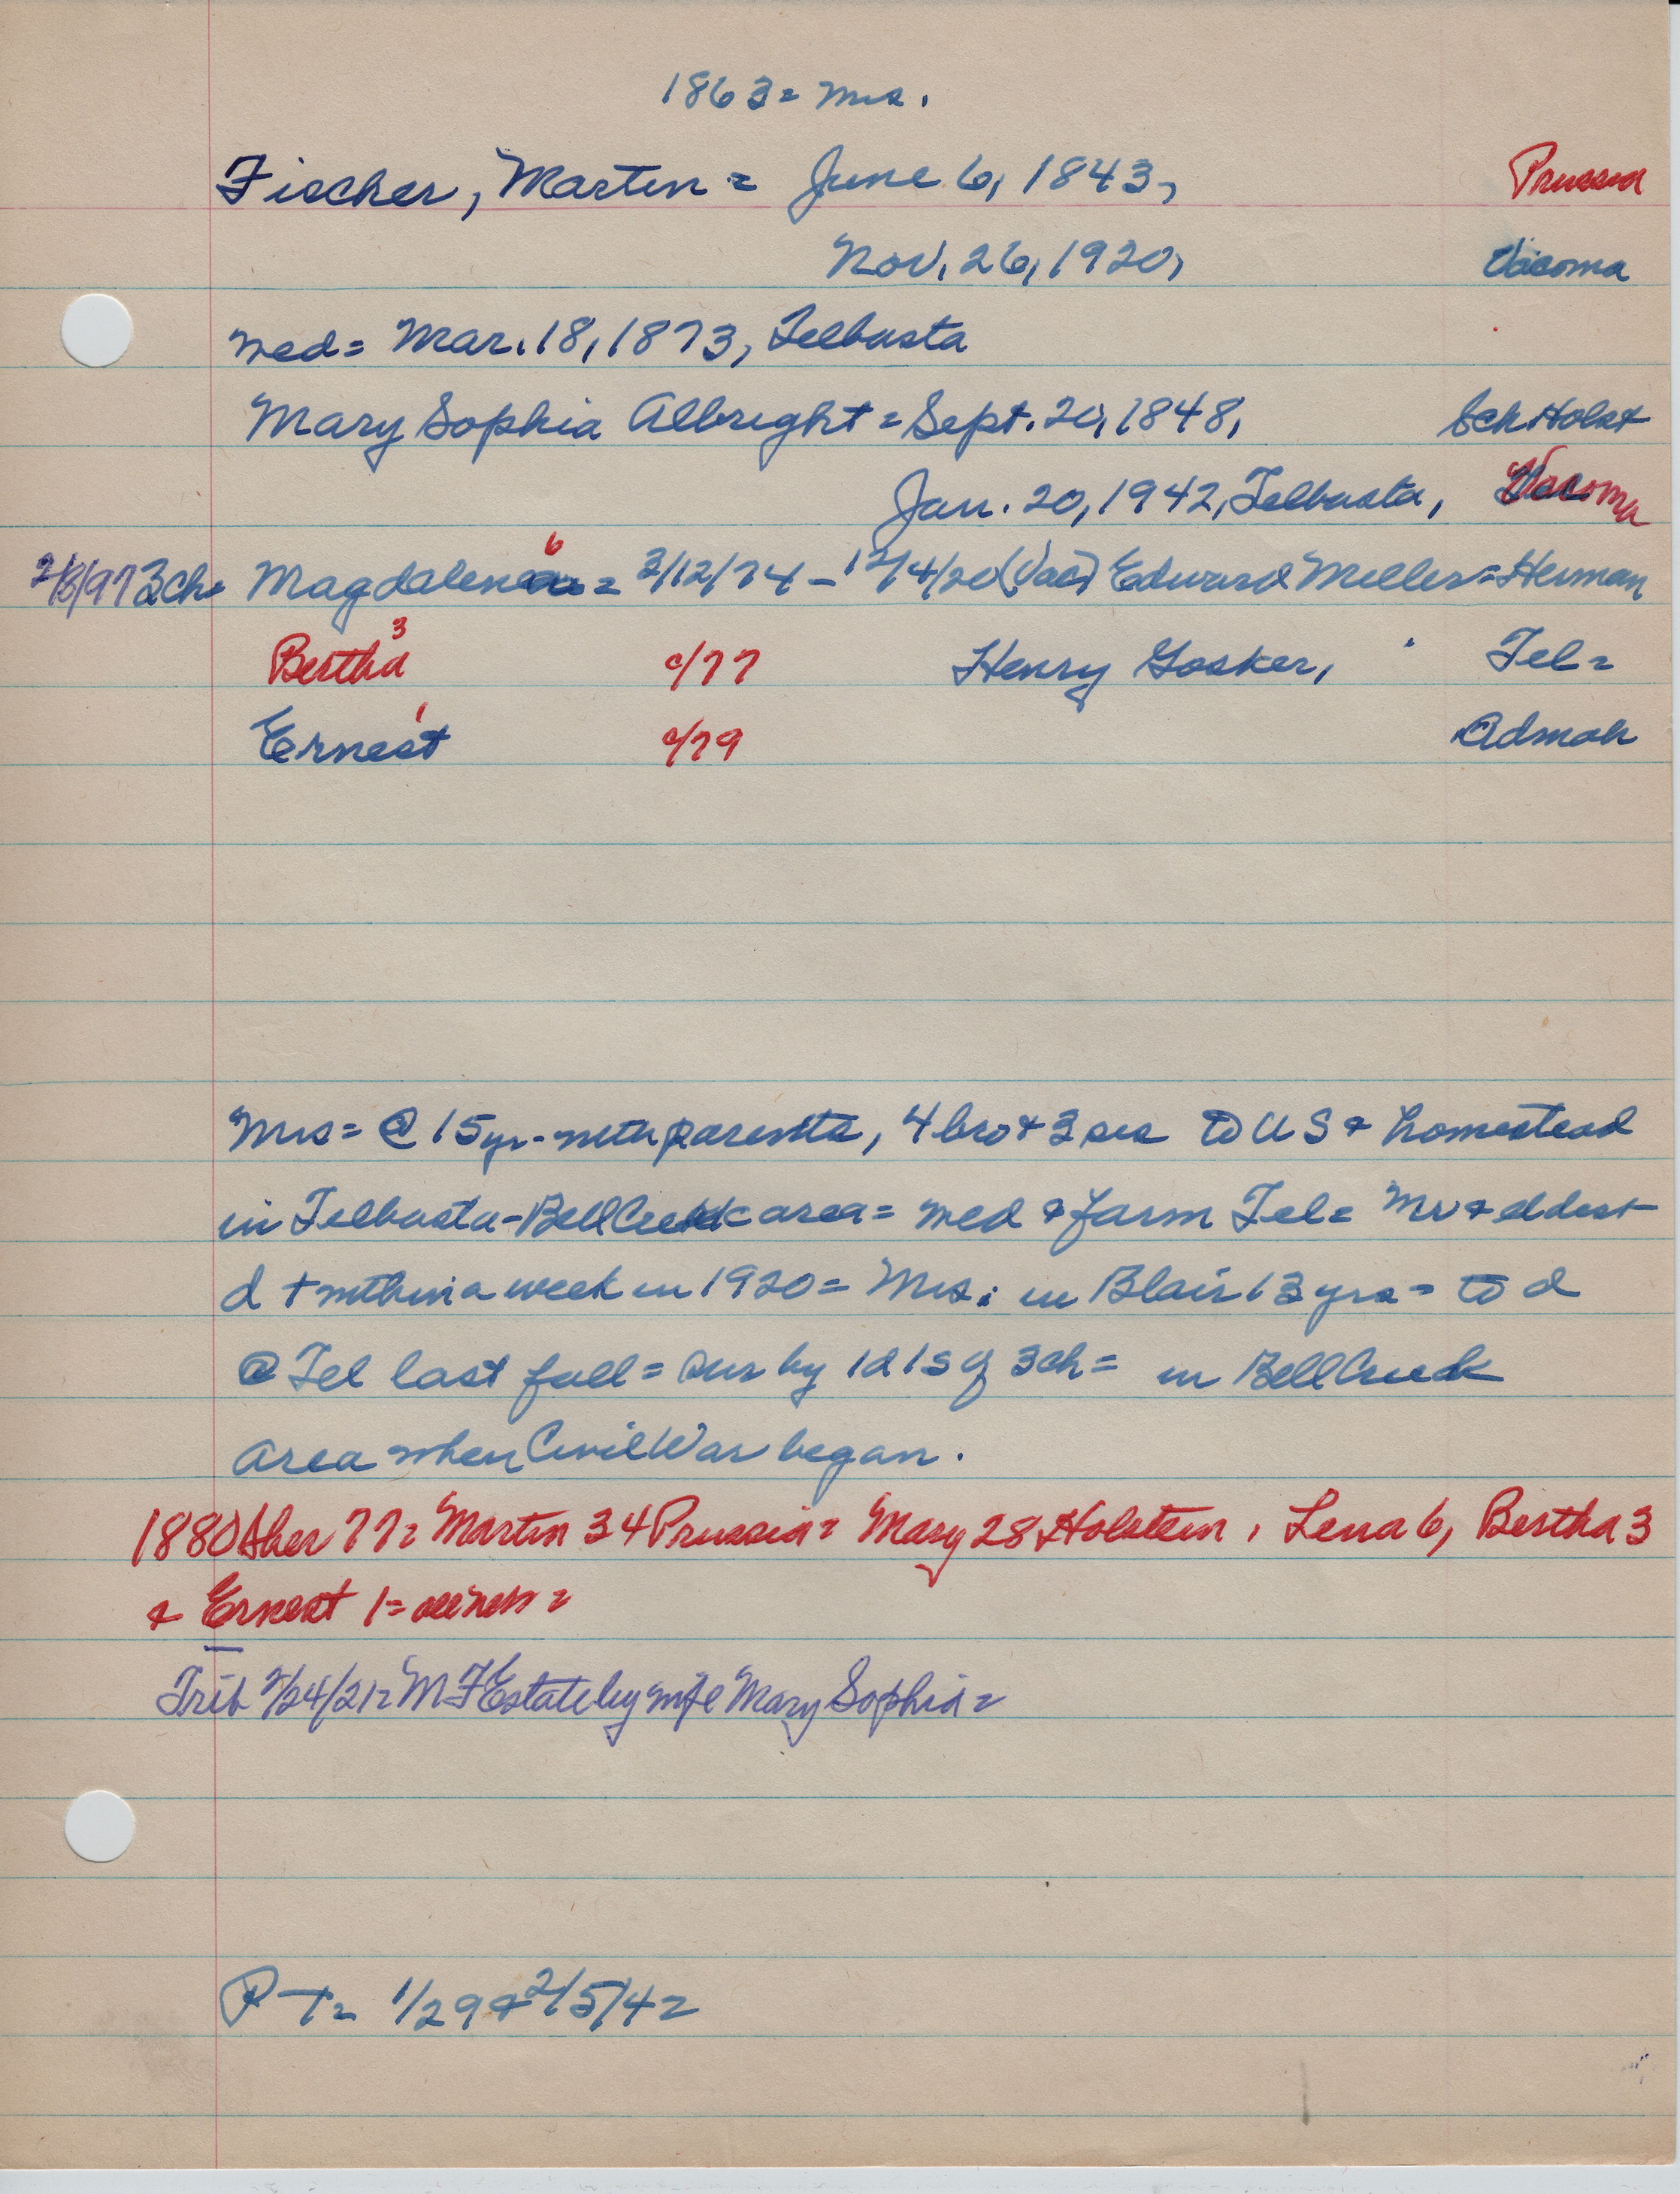 1863 = Mrs.
Fischer, Martin = June 6, 1843, Prussia
Nov. 26, 1920, Vacoma
med = Mar. 18, 1873, Telbasta
Mary Sophia Albright = Sept. 20, 1848, Sch Holst
Jan. 20, 1942, Telbasta, Vacoma
3 ch = Magdalena 6 = 3/12/74 - 12/4/20 (Vac) Edward Miller = Herman
Bertha 3 c/77 Henry Gosker, Tel =
Ernest 1 c/79 Admah
Mrs = @ 15 yr - with parents, 4 bro + 3 sis to US & homestead
in Telbasta - Bell Creek area = med & farm Tel = Mr & eldest
d + within a week in 1920 = Mrs: in Blair 13 yrs = to d
@ Tel last fall = sur by 1 d 1 s of 3 ch = in Bell Creek
area when Civil War began.
1880 Sher 77 = Martin 34 Prussia = Mary 28 Holstein, Lena 6, Bertha 3
& Ernest 1 =
Trib /24/21 = M F Estate by wife Mary Sophia =
P T = 1/29 & 2/5/42